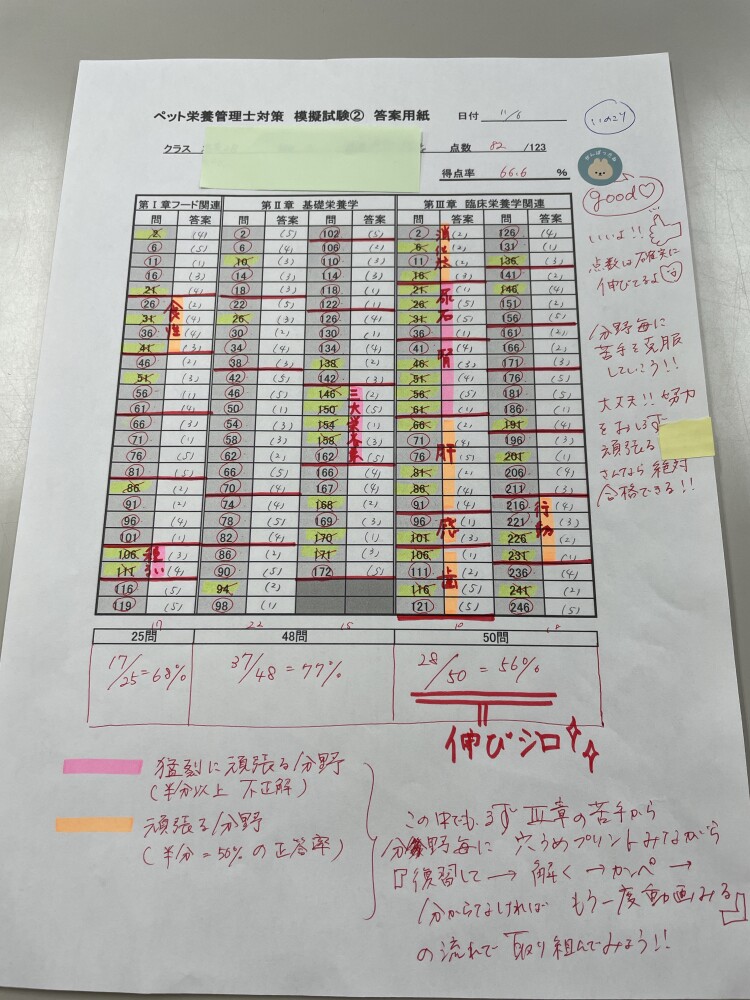 ペット栄養管理士対策 模擬試験② 答案用紙 日付 11/6
クラス 点数 82 /123
得点率 66.6 %
がんばったね
good♡
いいよ!!
点数は確実に
伸びてるよ
分野毎に
苦手を克服
していこう!!
大丈夫!! 努力
をおしまず
頑張る
さんなら絶対
合格できる!!
第Ⅰ章フード関連 第Ⅱ章 基礎栄養学 第Ⅲ章 臨床栄養学関連
問 答案 問 答案 問 答案 問 答案 問 答案
2 (4) 2 (5) 102 (5) 2 (2) 126 (4)
6 (5) 6 (4) 106 (2) 6 (2) 131 (1)
11 (1) 10 (3) 110 (3) 11 (2) 136 (3)
16 (3) 14 (3) 114 (3) 16 (3) 141 (2)
21 (4) 18 (3) 118 (1) 21 (1) 146 (4)
26 (2) 22 (5) 122 (1) 26 (5) 151 (2)
31 (4) 26 (3) 126 (4) 31 (5) 156 (5)
36 (4) 30 (2) 130 (1) 36 (1) 161 (2)
41 (3) 34 (4) 134 (2) 41 (4) 166 (2)
46 (2) 38 (3) 138 (2) 46 (5) 171 (3)
51 (3) 42 (5) 142 (3) 51 (4) 176 (5)
56 (1) 46 (5) 146 (2) 56 (5) 181 (5)
61 (4) 50 (1) 150 (5) 61 (1) 186 (1)
66 (3) 54 (5) 154 (1) 66 (2) 191 (4)
71 (1) 58 (3) 158 (3) 71 (4) 196 (3)
76 (5) 62 (2) 162 (5) 76 (5) 201 (1)
81 (5) 66 (5) 166 (4) 81 (2) 206 (4)
86 (2) 70 (4) 167 (4) 86 (4) 211 (3)
91 (2) 74 (4) 168 (2) 91 (4) 216 (4)
96 (4) 78 (5) 169 (3) 96 (5) 221 (3)
101 (1) 82 (4) 170 (1) 101 (3) 226 (2)
106 (3) 86 (2) 171 (3) 106 (1) 231 (1)
111 (4) 90 (5) 172 (5) 111 (2) 236 (4)
116 (5) 94 (2) 116 (5) 241 (2)
119 (5) 98 (1) 121 (5) 246 (5)
食性
三大栄養素
消化
尿石
腎
肝
感
歯
行動
17 22 15 10 18
25問 48問 50問
17/25=68% 37/48=77% 28/50=56%
伸びシロ
猛烈に頑張る分野
(半分以上 不正解)
頑張る分野
(半分=50%の正答率)
この中でもまずⅢ章の苦手から
分野毎に 穴うめプリントみながら
「復習して→解く→カンペ→
分からなければ もう一度動画みる」
の流れで取り組んでみよう!!